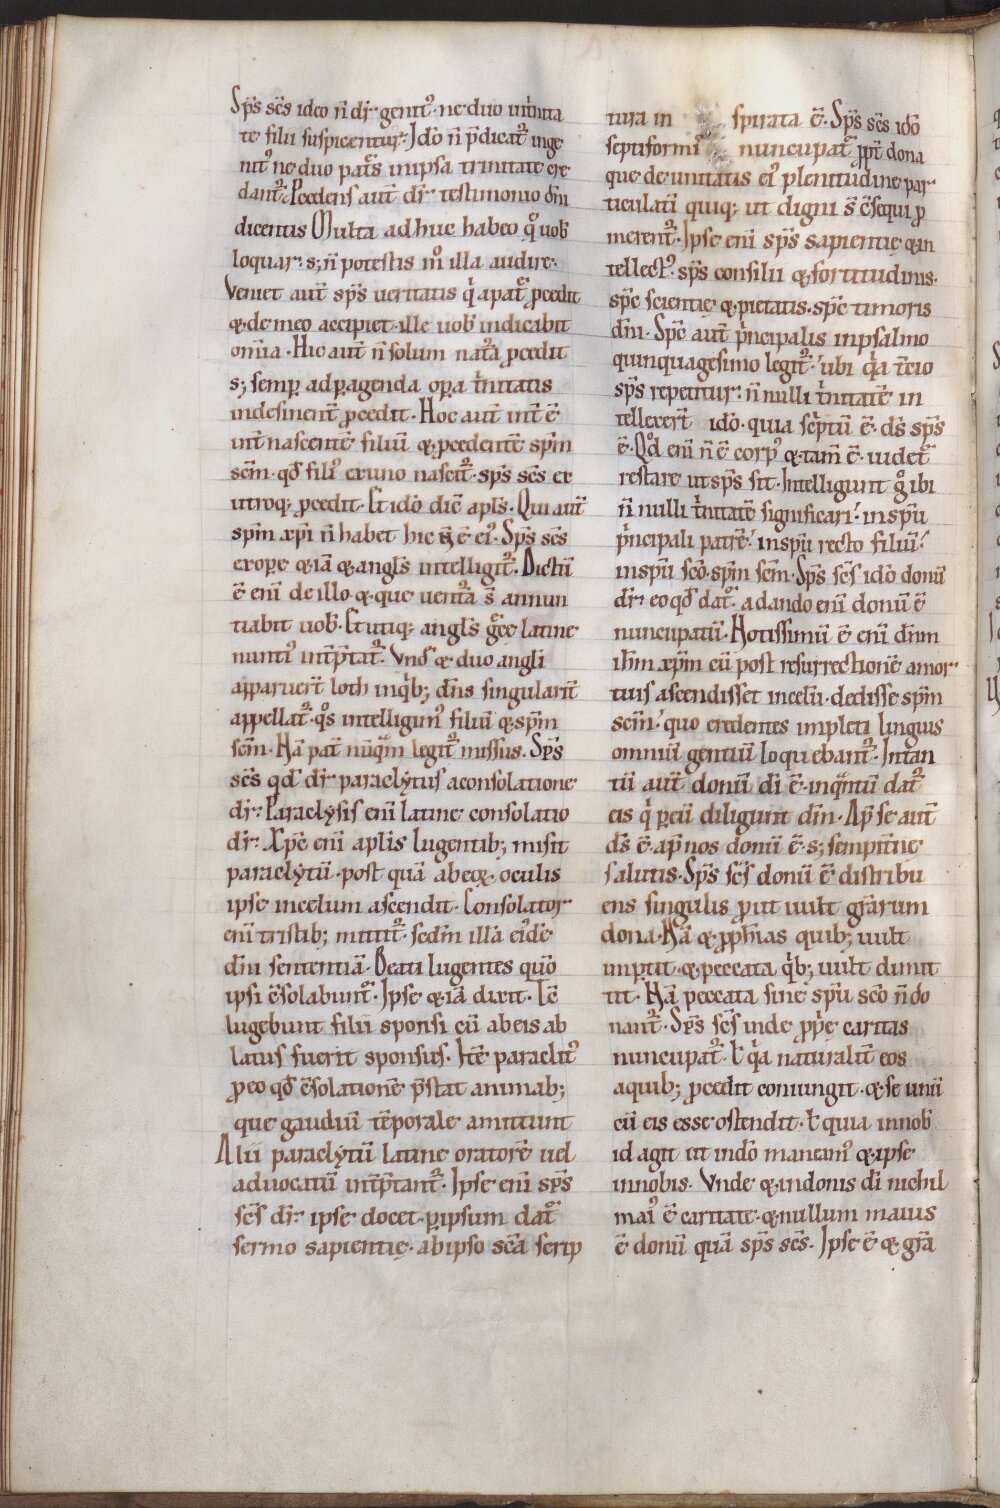 Sp̄s sc̄s ideo n̄ dr̄ genitꝰ. ne duo in tⁱnita
te filii suspicentur. Idō n̄ p̄dicat᷑ inge
nitꝰ ne duo pat̄s in ipsa trinitate cre
dant᷑. Pcedens aut̄ dr̄ testimonio dn̄i
dicentis Multa adhuc habeo q̊ uob̄
loquar. s; n̄ potestis m̊ illa audire.
Veniet aut̄ sp̄s ueritatis qⁱ a pat᷑e ꝓcedit
& de meo accipiet. ille uob̄ indicabit
om̄ia. Hic aut̄ n̄ solum nat᷑a ꝓcedit
s; semꝑ ad ꝑagenda oꝑa tⁱnitatis
indesinent̄ ꝓcedit. Hoc aut̄ int̄ ē
int̄ nascentē filiū & ꝓcedentē sp̄m
scm̄. qđ filiꝰ ex uno nascit᷑. sp̄s sc̄s ex
utroq; ꝓcedit. Et idō dic̄ apl̄s. Qui aut̄
sp̄m xp̄i n̄ habet hic n̄ ē eiꝰ. Sp̄s sc̄s
ex oꝑe & iā & angl̄s intelligit᷑. Dictū
ē eni de illo. & que uent᷑a s̄ annun
tiabit uob̄. Et utiq; angl̄s g᷑ec̄ latine
nuntiꝰ int̄p̄tat᷑. Vnđ & duo angl̄i
apparuer̄t loth in qⁱb; dn̄s singularit̄
appellat᷑. q̊s intelligimꝰ filiū & sp̄m
scm̄. Nā pat̄ nūqᵃm legit᷑ missus. Sp̄s
sc̄s qđ dr̄ paraclytus a consolatione
dr̄. Paraclysis eni latine consolatio
dr̄. Xp̄c eni aplis lugentib; misit
paraclytū. post quā ab eoꝝ oculis
ipse in celum ascendit. Consolator
eni tristib; mittit᷑. & sc̄dm illā eiꝰdē
dn̄i sententiā. Beati lugentes qm̄
ipsi c̄solabunt᷑. Ipse & iā dixit. Tc̄
lugebunt filii sponsi cū ab eis ab
latus fuerit sponsus. Itē paraclitꝰ
ꝓ eo qđ c̄solationē p̄stat animab;
que gaudiū tēporale amittunt
Alii paraclytū latine oratorē uel
aduocatū int̄p̄tant᷑. Ipse eni sp̄s
sc̄s dr̄ ipse docet. ꝑ ipsum dat᷑
sermo sapientię. ab ipso sc̄a scrip
tura in spirata ē. Sp̄s sc̄s idō
septiformiꝰ nuncupat᷑ ꝓpt̄ dona
que de unitatis eiꝰ plenitudine par
ticulati quiq; ut digni s̄ c̄sequi ꝓ
merent᷑. Ipse eni sp̄s sapientię & in
tellectꝰ. sp̄s consilii & fortitudinis.
sp̄c scientię & pietatis. sp̄c timoris
dn̄i. Sp̄c aut̄ pⁱncipalis in psalmo
quinquagesimo legit᷑. ubi qⁱa t̄cio
sp̄s repetitur. n̄ nulli tⁱnitatē in
tellexer̄t idō. quia scⁱptū ē. ds̄ sp̄s
ē. Qđ eni n̄ ē corpꝰ & tam̄ ē. uidet᷑
restare ut sp̄s sit. Intelligunt g̊ ibi
n̄ nulli tⁱnitatē significari. in sp̄u
pⁱncipali patrē. in sp̄u recto filiū.
in sp̄u sc̄o. sp̄m scm̄. Sp̄s sc̄s idō donū
dr̄ eo qđ dat᷑. a dando eni donū ē
nuncupatū. Notissimū ē eni dn̄m
ih̄m xp̄m cū post resurrectionē a mor
tuis ascendisset in celū. dedisse sp̄m
scm̄. quo credentes impleti linguis
omniū gentiū loquebant᷑. In tan
tū aut̄ donū di ē. inqᵃntū dat᷑
eis qⁱ ꝑ eū diligunt dm̄. Ap̄ se aut̄
ds̄ ē. ap̄ nos donū ē. s; sempit̄nę
salutis. Sp̄s sc̄s donū ē distribu
ens singulis ꝓut uult gr̄arum
dona. Nā & ꝓph̄ias quib; uult
imꝑtit. & peccata qⁱb; uult dimit
tit. Nā peccata sine sp̄u sc̄o n̄ do
nant᷑. Sp̄s sc̄s inde ꝓpⁱe caritas
nuncupat᷑. ł qⁱa naturalit̄ eos
a quib; ꝓcedit coniungit. & se unū
cū eis esse ostendit. ł quia in nob̄
id agit ut in dō maneamꝰ & ipse
in nobis. Vnde & in donis di nichil
maiꝰ ē caritate. & nullum maius
ē donū quā sp̄s sc̄s. Ipse ē & gr̄a